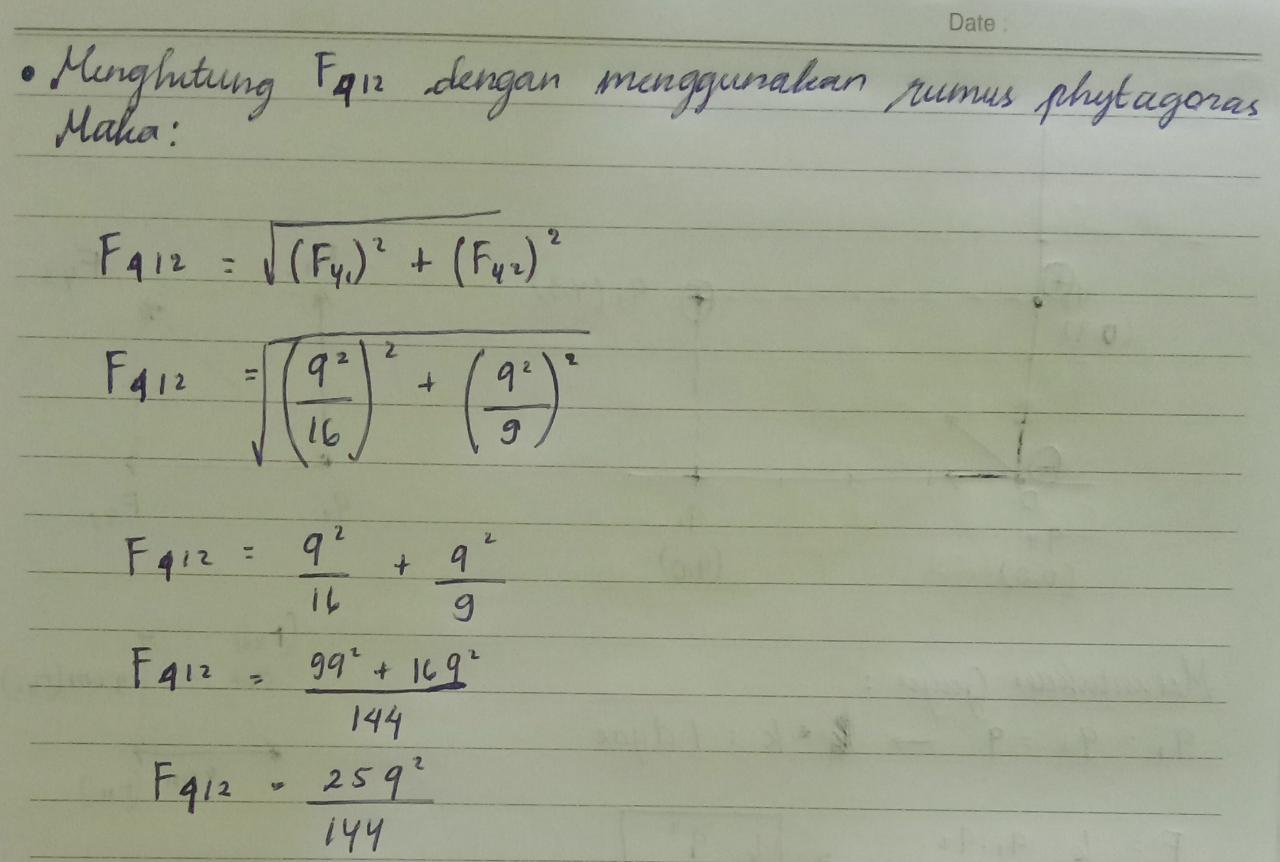 Date :
• Menghitung Fq12 dengan menggunakan rumus phytagoras
Maka:
Fq12 = √(Fy1)² + (Fy2)²
Fq12 = √(q²/16)² + (q²/9)²
Fq12 = q²/16 + q²/9
Fq12 = 9q² + 16q²/144
Fq12 = 25q²/144